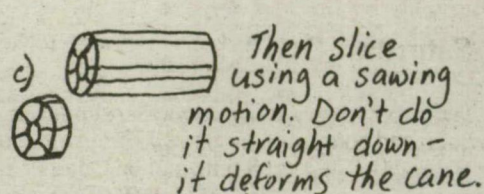 c) Then slice
using a sawing
motion. Don't do
it straight down -
it deforms the cane.